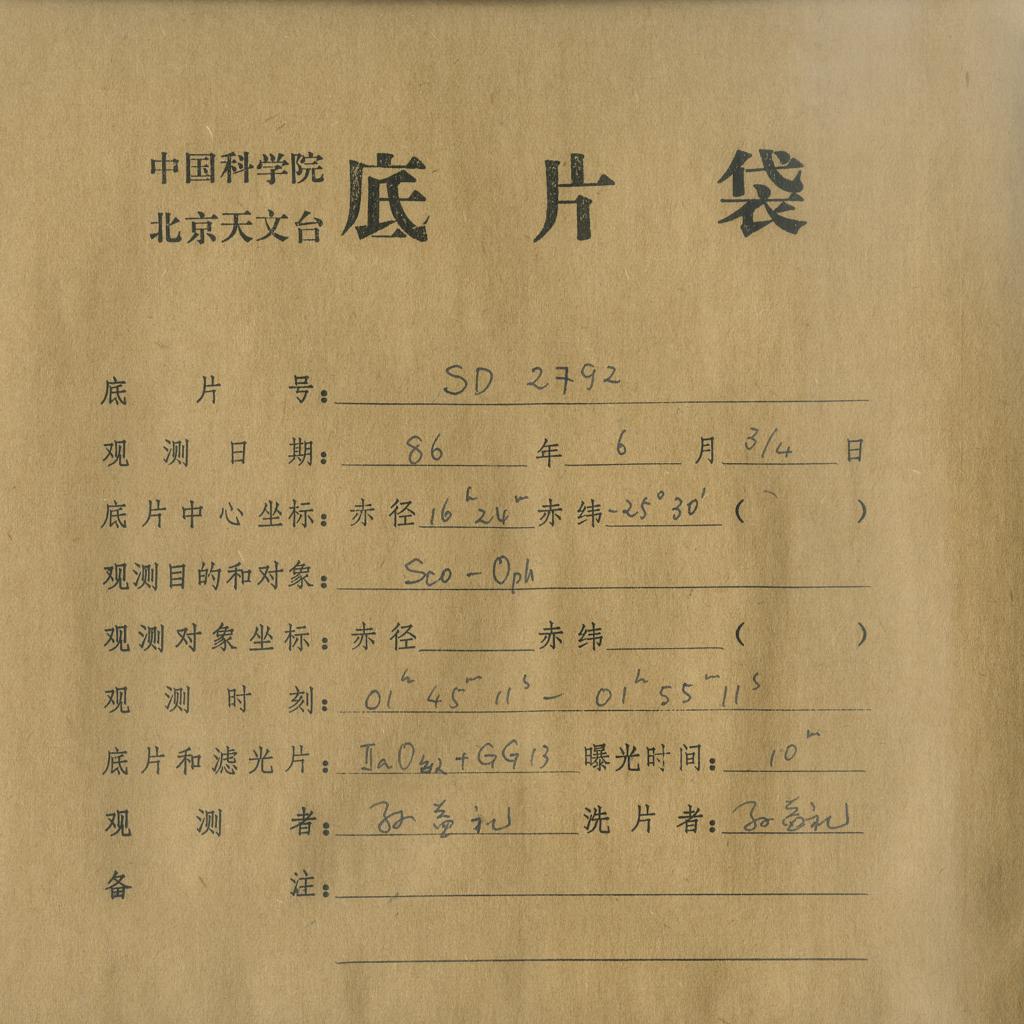 中国科学院
北京天文台
底片袋
底片号: SD 2792
观测日期: 86 年 6 月 3/4 日
底片中心坐标: 赤径 16ʰ 24ᵐ 赤纬 -25° 30′ ( )
观测目的和对象: Sco - Oph
观测对象坐标: 赤径 赤纬 ( )
观测时刻: 01ʰ 45ᵐ 11ˢ - 01ʰ 55ᵐ 11ˢ
底片和滤光片: IIaO + GG13 曝光时间: 10ᵐ
观测者: 孙益礼 洗片者: 孙益礼
备注: